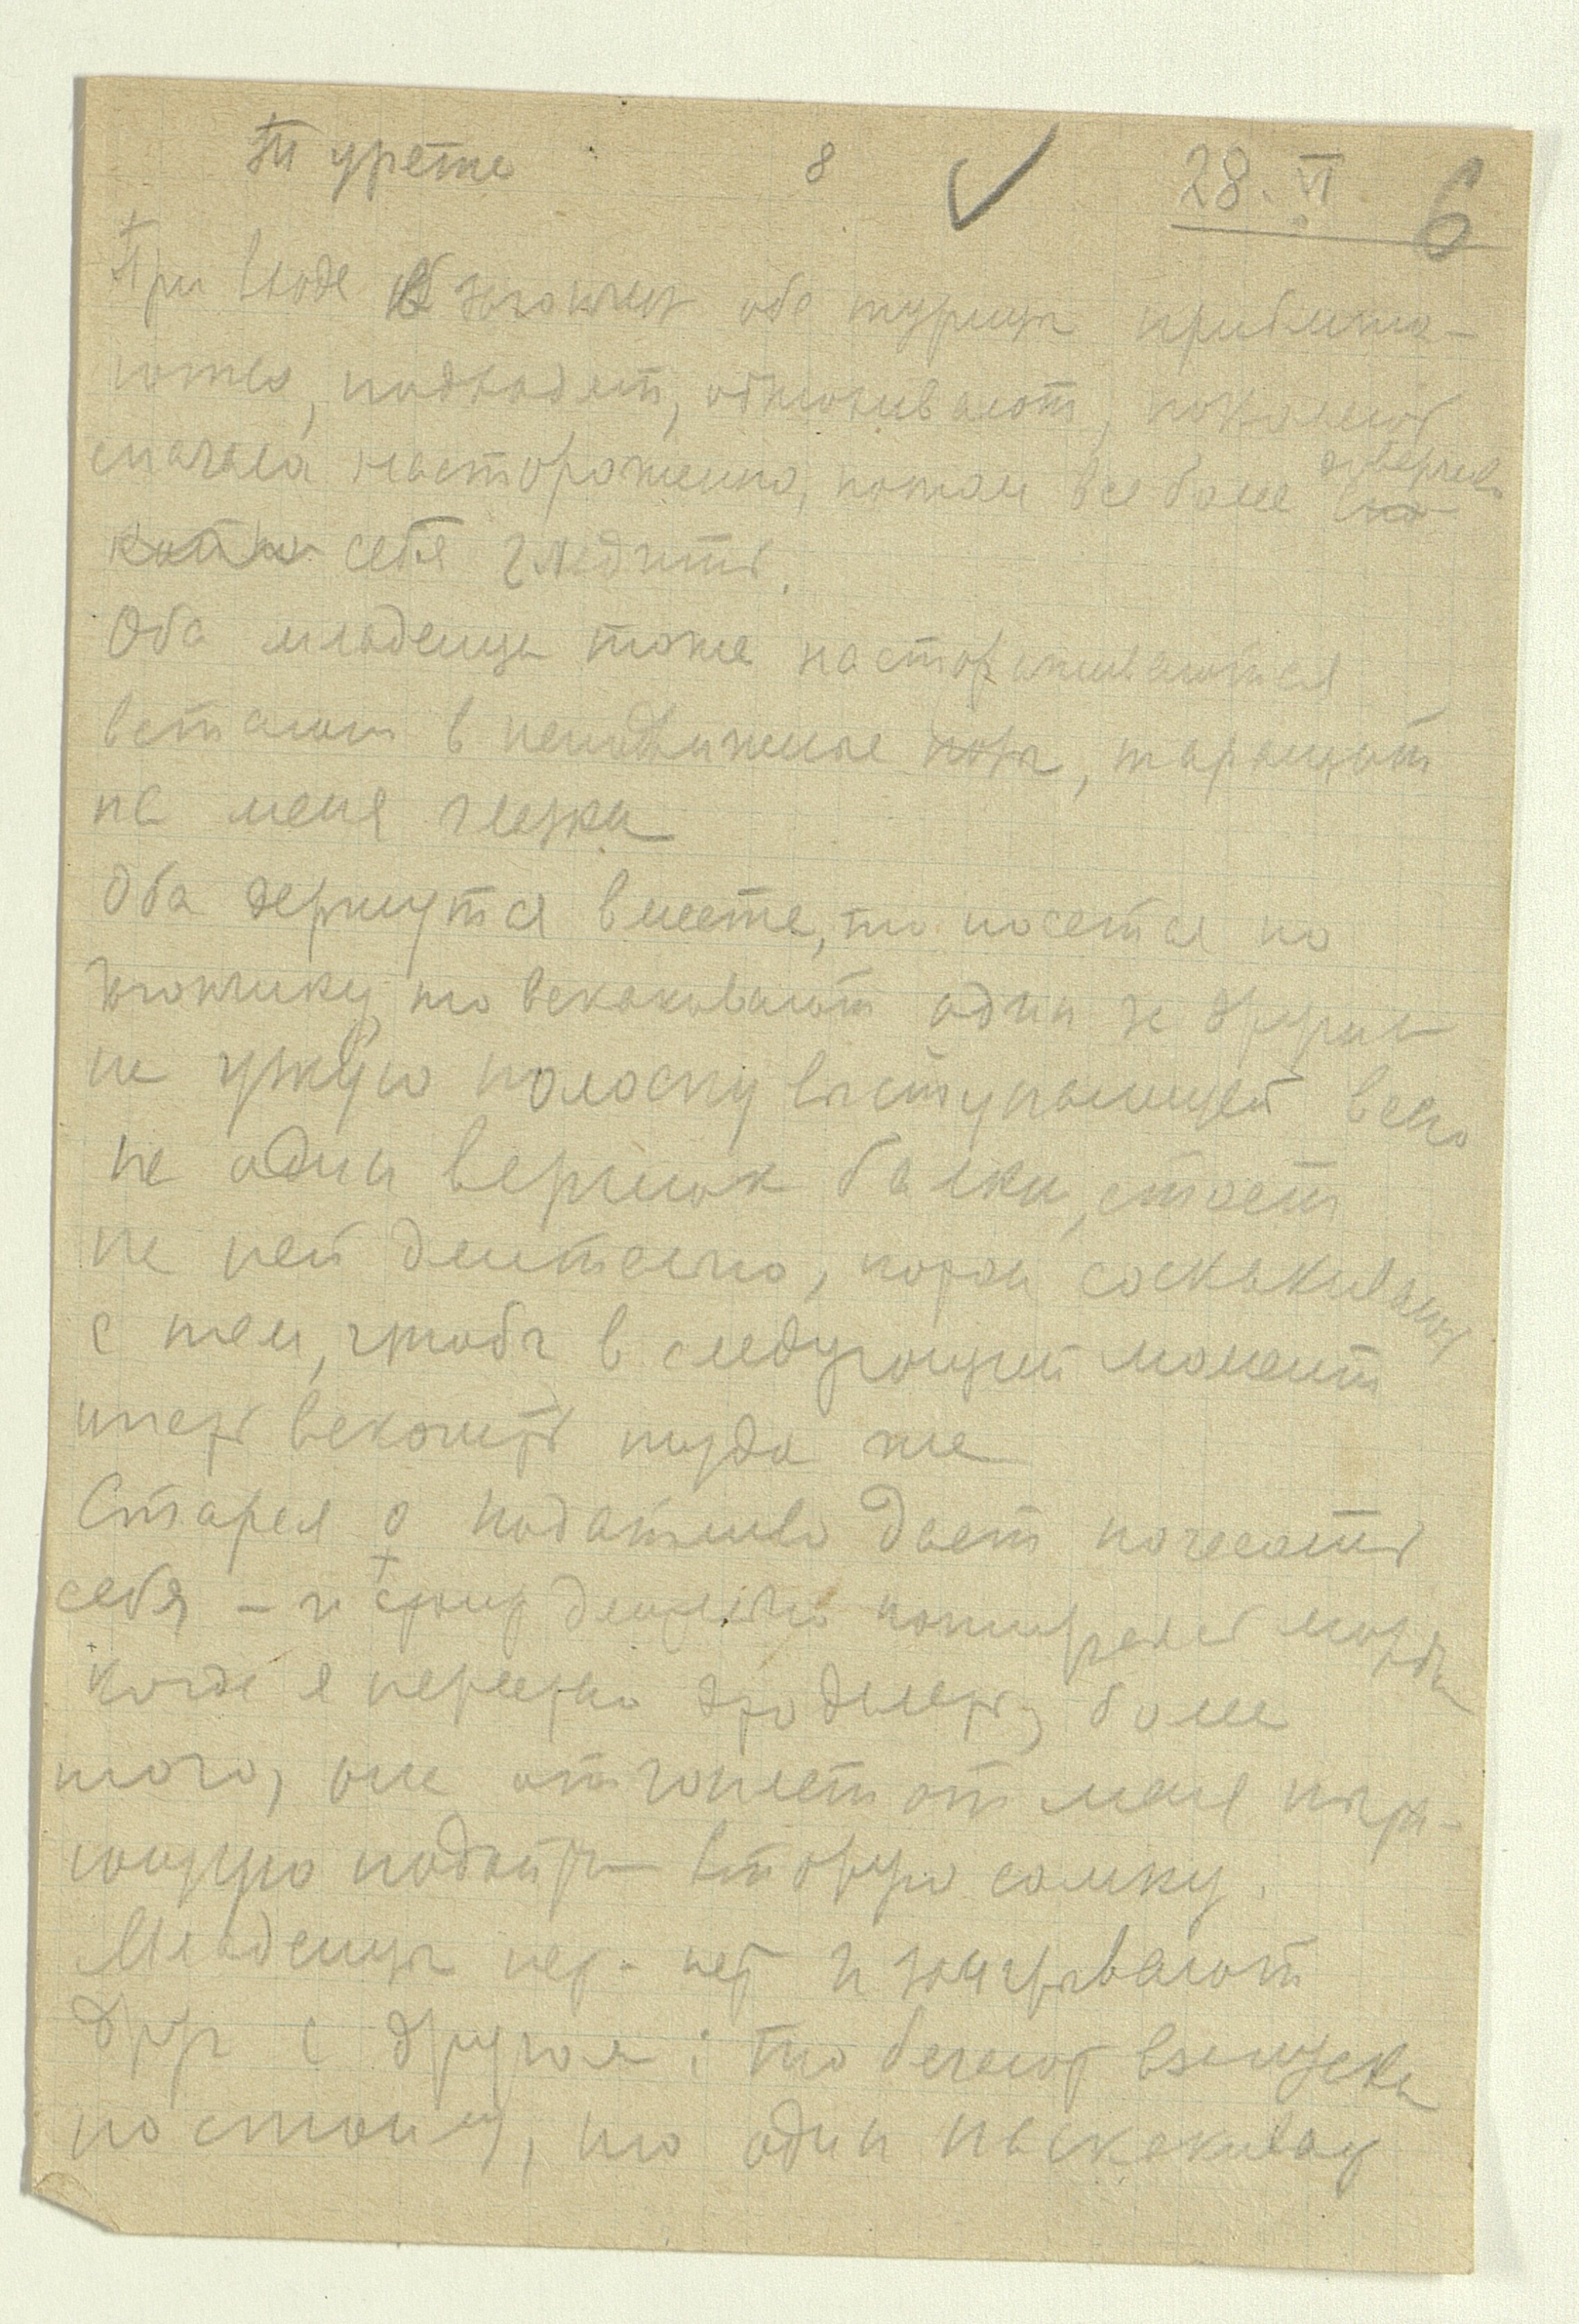 Турята 8 ✓ 28. VI 6
При входе в загончик обе турицы приближа-
ются, подходят, обнюхивают,
сначала настороженно, потом все более доверчиво
себя гладить.
Оба младенца тоже настораживаются
встают в неподвижные позы, таращат
на меня глазки
Оба дернутся вместе, то носятся по
загончику, то вскакивают один за другим
на узкую полоску выступающей всего
на один вершок балки, стоят
на ней длительно, потом соскакивают
с тем, чтобы в следующий момент
опять вскочить туда же
Старая ♀ податливо дает почесать
себя – и
когда я нерезко более
того, она отгоняет от меня
вторую самку.
Младенцы нет-нет и заигрывают
друг с другом: то бегают взапуски
по стойлу, то один наскакивает